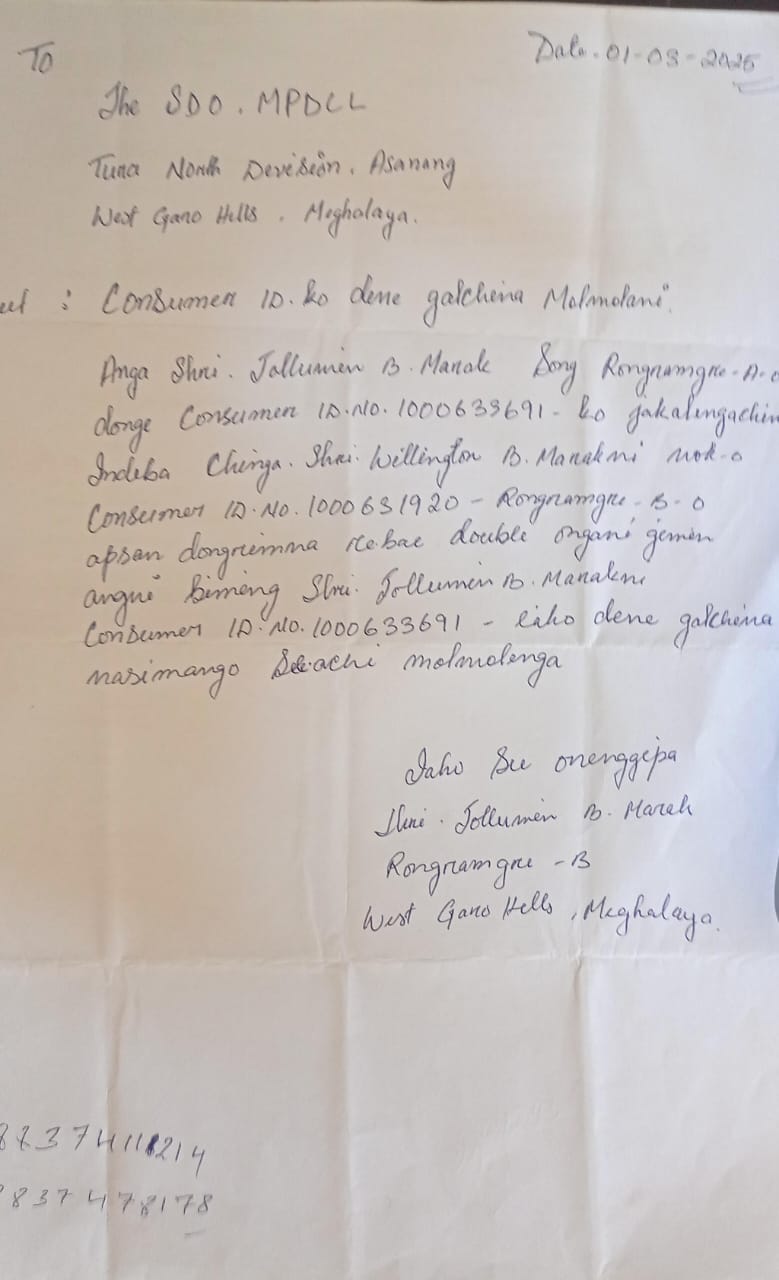 To
Date. 01-03-2025
The SDO. MPDCL
Tura North Devision. Asanang
West Garo Hills. Meghalaya.
: Consumer ID. ko dene galchina Molmolani.
Anga Shri. Jollumin B. Marak Song Rongramgre-A-o
donge Consumer ID. No. 1000633691- ko jakalengachim
Indeba Chinga. Shri. Willington B. Marakni nok-o
Consumer ID. No. 1000631920 - Rongramgre-B-o
apsan dongrimna rebae double ongani gimin
angni biming Shri. Jollumin B. Marakni
Consumer ID. No. 1000633691 - iako dene galchina
nasimango molmolenga
Iako See onenggipa
Shri. Jollumin B. Marak
Rongramgre - B
West Garo Hells, Meghalaya.
837478178